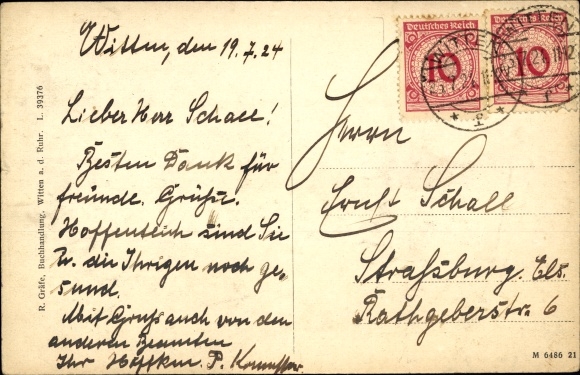 Witten, den 19.7.24
Lieber Herr Schall!
Besten Dank für
freundl. Grüße.
Hoffentlich sind Sie
u. die Ihrigen noch ge-
sund.
Mit Gruß auch von den
anderen Beamten
Ihr
R. Gräfe, Buchhandlung, Witten a. d. Ruhr. L. 39376
Deutsches Reich
10
Deutsches Reich
10
WITTEN
Herrn
Ernst Schall
Straßburg. Els.
Rathgeberstr. 6
M 6486 21